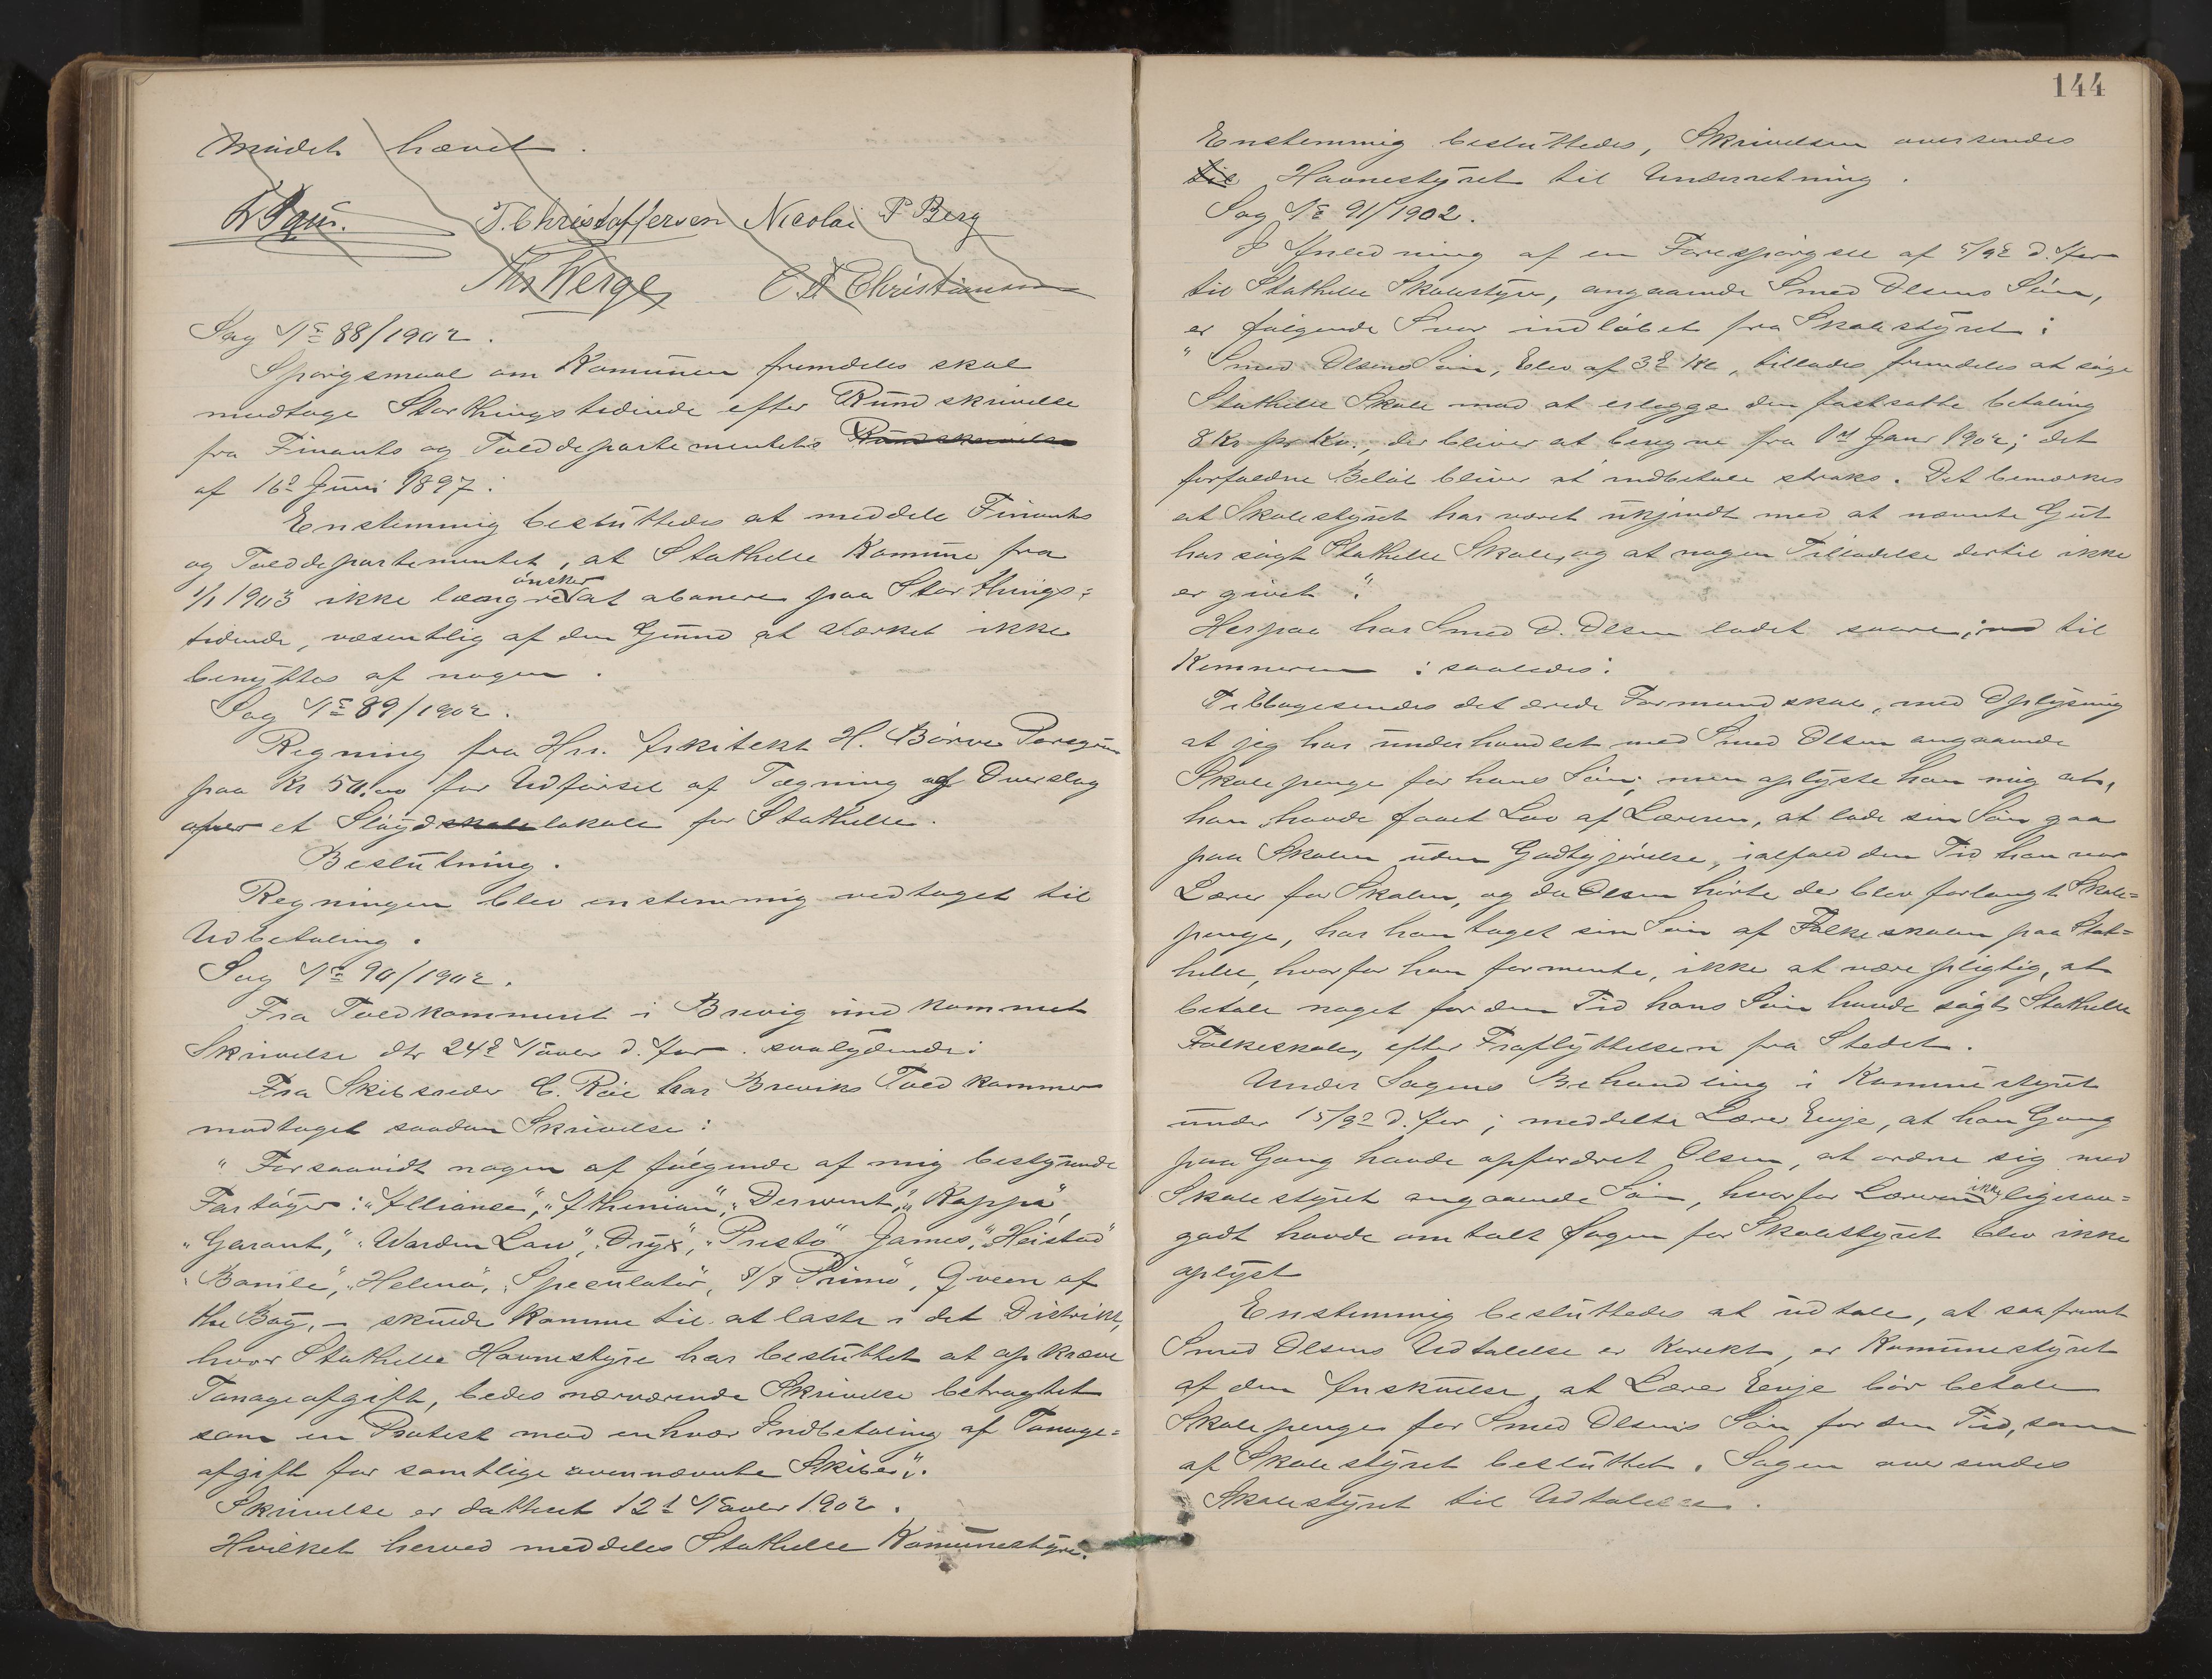 Mödet hævet.
T. Christoffersen Nicolai P Berg
Thr Werge C. A Christiansen
Sag No 88/1902.
Spörgsmaal om Komunen fremdeles skal
modtage Storthingstidende efter Rundskrivelse
fra Finants og Tolddepartementets Rundskrivelse
af 16de Juni 1897:
Enstemmig besluttedes at meddele Finants
og Tolddepartementet, at Stathelle Komune fra
1/1 1903 ikke længre önsker at abonere paa Storthings=
tidende, væsentlig af den Grund at Værket ikke
benyttes af nogen.
Sag No 89/1902.
Regning fra Hrr. Arkitekt H. Börve Porsgrun
paa Kr 50.00 for Udförsel af Tegning og Overslag
over et Slöydskolelokale for Stathelle.
Beslutning.
Regningen blev enstemmig vedtaget til
Udbetaling.
Sag No 90/1902.
Fra Toldkammeret i Brevig indkommet
Skrivelse dtr 24de Novbr d. Aar. saalydende:
Fra Skibsreder C. Röe har Breviks Toldkammer
modtaget saadan Skrivelse:
"Forsaavidt nogen af fölgende af mig bestyrende
Fartöyer: "Alliance", "Athenian", "Derwent", "Kappa",
"Garant", "Warden Law", "Oryx", "Presto" James", "Heistad"
"Bamle", "Helena", "Speculator", S/S "Primo", Qveen of
the Bay, – skulde komme til at laste i det Distrikt,
hvor Stathelle Havnestyre har besluttet at opkræve
Tonageafgift, bedes nærværende Skrivelse betragtet
som en Protest mod enhver Indbetaling af Tonage=
afgift for samtlige ovennævnte Skibe".
Skrivelse er dateret 12te Novbr 1902.
Hvilket herved meddeles Stathelle Komunestyre.
144
Enstemmig besluttedes, Skrivelsen oversendes
til Havnestyret til Underretning.
Sag No 91/1902.
I Anledning af en Forespörgsel af 5/9de d. Aar
til Stathelle Skolestyre, angaaende Smed Olsens Sön,
er fölgende Svar indlöbet fra Skolestyret:
"Smed Olsens Sön, Elev af 3de Kl, tillades fremdeles at söge
Stathelle Skole mod at erlægge den fastsatte betaling
8 Kr pr Kv., der bliver at beregne fra 1st Janr 1902; det
forfaldne Belöb bliver at indbetale straks. Det bemærkes
at Skolestyret har været ukjendt med at nævnte Gut
har sögt Stathelle Skole, og at nogen Tilladelse dertil ikke
er givet".
Herpaa har Smed O. Olsen ladet svare; til
Kemneren: saaledes:
Tilbagesendes det ærede Formandskab, med Oplysning
at jeg har underhandlet med Smed Olsen angaaende
Skolepenge for hans Sön; men oplyste han mig at,
han havde faaet Lov af Læreren, at lade sin Sön gaa
paa Skolen uden Godtgjörelse, ialfald den Tid han var
Lærer for Skolen, og da Olsen hörte der blev forlangt Skole=
penge, har han taget sin Sön af Folkeskolen paa Stat=
helle, hvorfor han formente, ikke at være pligtig, at
betale noget for den Tid hans Sön havde sögt Stathelle
Folkeskole, efter Fraflyttelsen fra Stedet.
Under Sagens Behandling i Kommunestyret
under 15/9de d. Aar; meddelte Lærer Enje, at han Gang
paa Gang havde opfordret Olsen, at ordne sig med
Skolestyret angaaende Sön, hvorfor Læreren ikke ligesaa=
godt havde omtalt Sagen for Skolestyret blev ikke
oplyst
Enstemmig besluttedes at udtale, at saafremt
Smed Olsens Udtalelse er korekt, er Komunestyret
af den Anskuelse, at Lærer Enje bör betale
Skolepenge for Smed Olsens Sön for den Tid, som
af Skolestyret besluttet. Sagen oversendes
Skolestyret til Udtalelse.